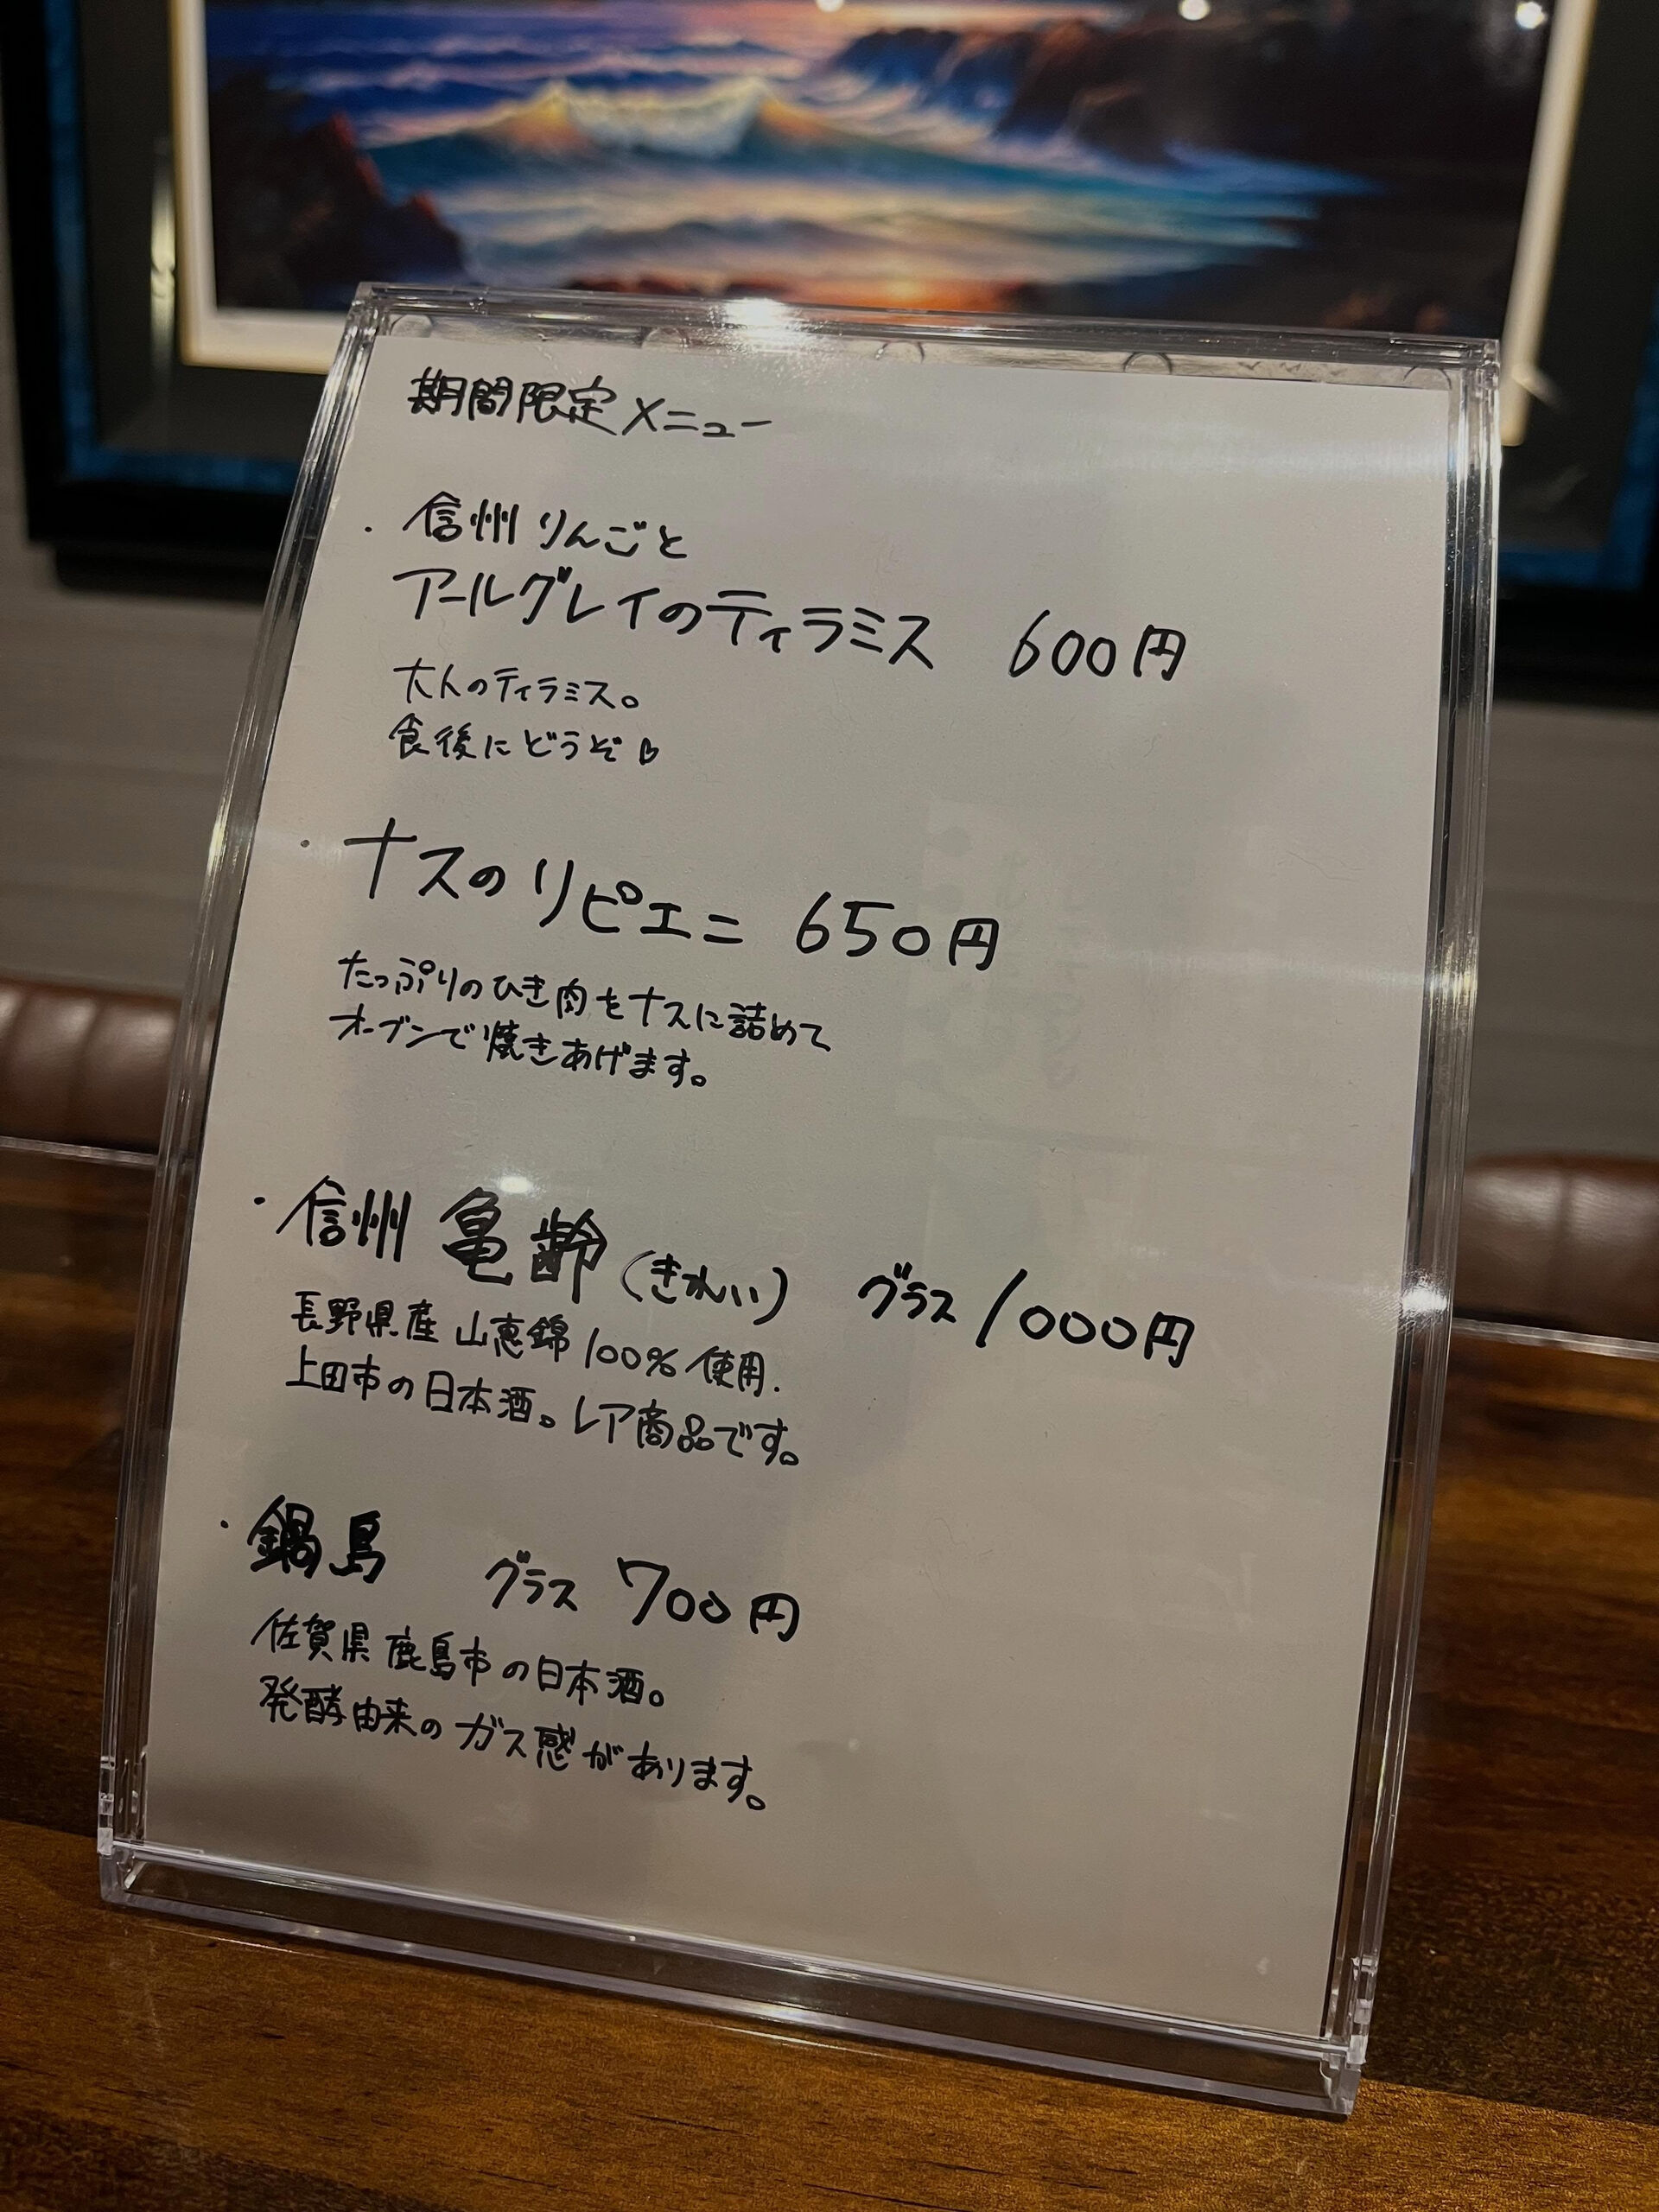 期間限定メニュー
・信州りんごと
アールグレイのティラミス 600円
大人のティラミス。
食後にどうぞ♡
・ナスのリピエニ 650円
たっぷりのひき肉をナスに詰めて
オーブンで焼きあげます。
・信州 亀齢(きれい) グラス 1000円
長野県産 山恵錦100%使用.
上田市の日本酒。レア商品です。
・鍋島 グラス 700円
佐賀県鹿島市の日本酒。
発酵由来のガス感があります。